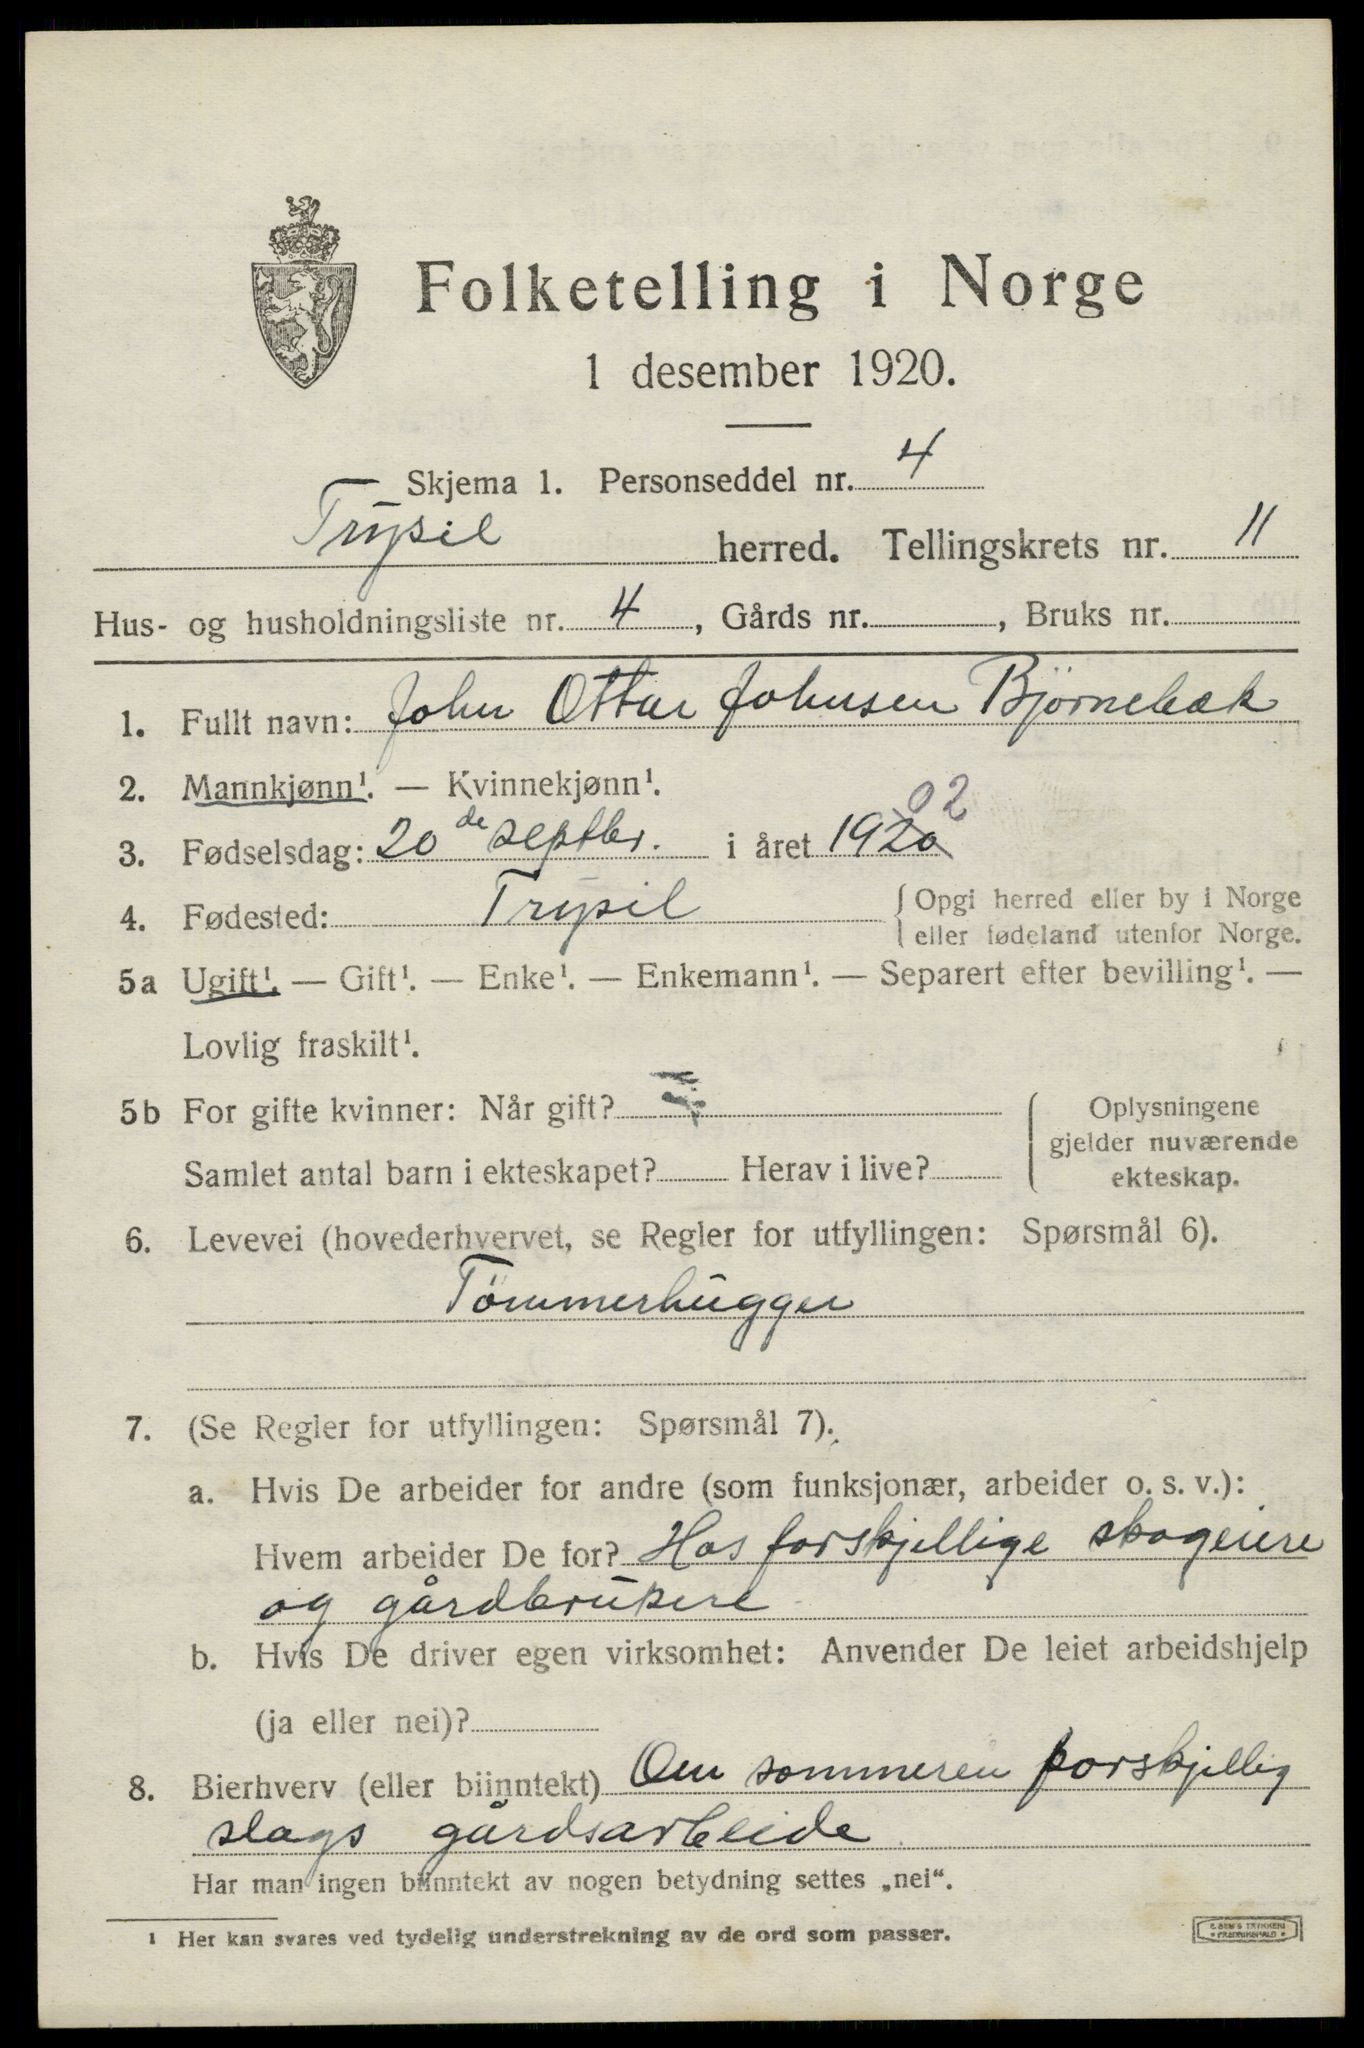 Folketelling i Norge
1 desember 1920.
Skjema 1. Personseddel nr. 4
Trysil herred. Tellingskrets nr. 11
Hus- og husholdningsliste nr. 4, Gårds nr. , Bruks nr.
1. Fullt navn: John Ottar Johnsen Björnebæk
2. Mannkjønn¹. — Kvinnekjønn¹.
02
3. Fødselsdag: 20de septbr. i året 1920
4. Fødested: Trysil { Opgi herred eller by i Norge
eller fødeland utenfor Norge.
5a Ugift¹. — Gift¹. — Enke¹. — Enkemann¹. — Separert efter bevilling¹. —
Lovlig fraskilt¹.
5b For gifte kvinner: Når gift? { Oplysningene
gjelder nuværende
Samlet antal barn i ekteskapet? Herav i live? ekteskap.
6. Levevei (hovederhvervet, se Regler for utfyllingen: Spørsmål 6).
Tömmerhugger
7. (Se Regler for utfyllingen: Spørsmål 7).
a. Hvis De arbeider for andre (som funksjonær, arbeider o. s. v.):
Hvem arbeider De for? Hos forskjellige skogeiere
og gårdbrukere
b. Hvis De driver egen virksomhet: Anvender De leiet arbeidshjelp
(ja eller nei)?
8. Bierhverv (eller biinntekt) Om sommeren forskjellig
slags gårdsarbeide
Har man ingen biinntekt av nogen betydning settes „nei“.
¹ Her kan svares ved tydelig understrekning av de ord som passer.